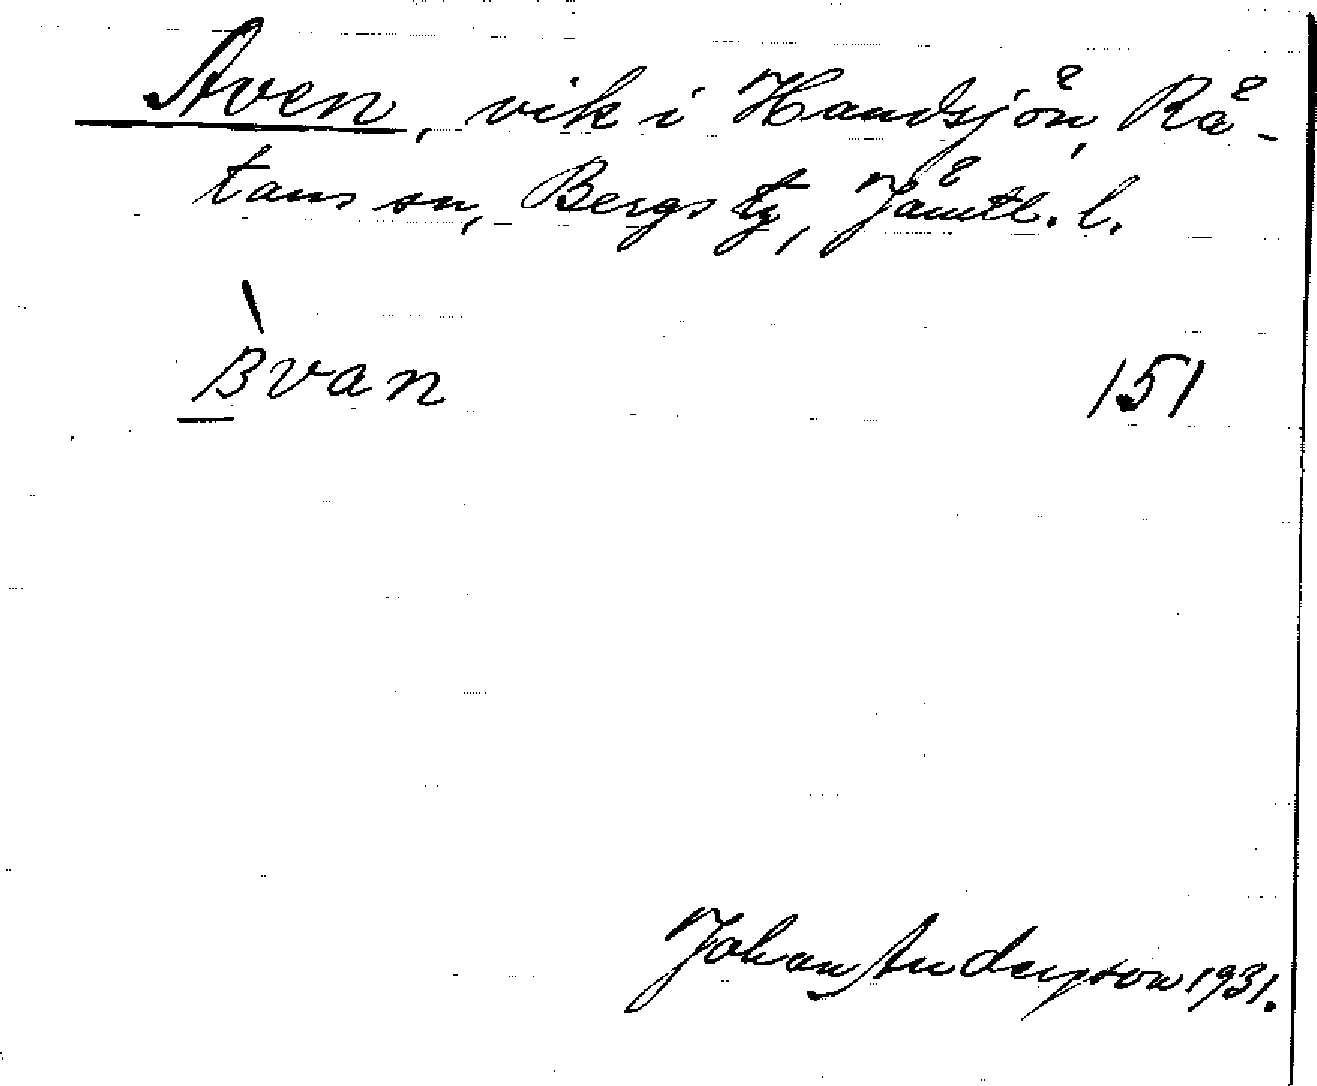 Aven, vik i Handsjön, Rå-
tans sn, Bergs tg, Jämtl. l.
Bvan 151
Johan Anderson 1931.